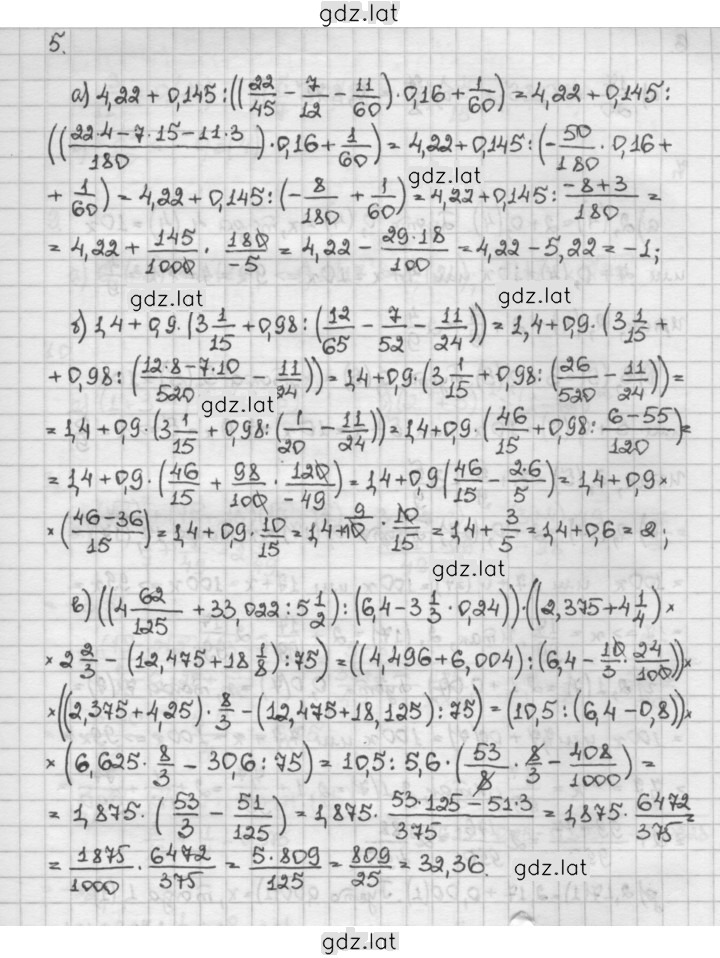 gdz.lat
5.
а) 4,22 + 0,145 : ((22/45 − 7/12 − 11/60) · 0,16 + 1/60) = 4,22 + 0,145 :
((22·4 − 7·15 − 11·3)/180) · 0,16 + 1/60) = 4,22 + 0,145 : (−50/180 · 0,16 +
gdz.lat
+ 1/60) = 4,22 + 0,145 : (−8/180 + 1/60) = 4,22 + 0,145 : (−8+3)/180 =
= 4,22 + 145/1000 · 180/−5 = 4,22 − 29·18/100 = 4,22 − 5,22 = −1;
gdz.lat gdz.lat
б) 1,4 + 0,9 · (3 1/15 + 0,98 : (12/65 − 7/52 − 11/24)) = 1,4 + 0,9 · (3 1/15 +
+ 0,98 : ((12·8 − 7·10)/520 − 11/24)) = 1,4 + 0,9 · (3 1/15 + 0,98 : (26/520 − 11/24)) =
gdz.lat
= 1,4 + 0,9 · (3 1/15 + 0,98 : (1/20 − 11/24)) = 1,4 + 0,9 · (46/15 + 0,98 : (6−55)/120) =
= 1,4 + 0,9 · (46/15 + 98/100 · 120/−49) = 1,4 + 0,9 (46/15 − 2·6/5) = 1,4 + 0,9 ×
× ((46−36)/15) = 1,4 + 0,9 · 10/15 = 1,4 + 9/10 · 10/15 = 1,4 + 3/5 = 1,4 + 0,6 = 2;
gdz.lat
в) ((4 62/125 + 33,022 : 5 1/2) : (6,4 − 3 1/3 · 0,24)) · ((2,375 + 4 1/4) ×
× 2 2/3 − (12,475 + 18 1/8) : 75) = ((4,496 + 6,004) : (6,4 − 10/3 · 24/100)) ×
× ((2,375 + 4,25) · 8/3 − (12,475 + 18,125) : 75) = (10,5 : (6,4 − 0,8)) ×
× (6,625 · 8/3 − 30,6 : 75) = 10,5 : 5,6 · (53/8 · 8/3 − 408/1000) =
= 1,875 · (53/3 − 51/125) = 1,875 · (53·125 − 51·3)/375 = 1,875 · 6472/375 =
= 1875/1000 · 6472/375 = 5·809/125 = 809/25 = 32,36.
gdz.lat
gdz.lat